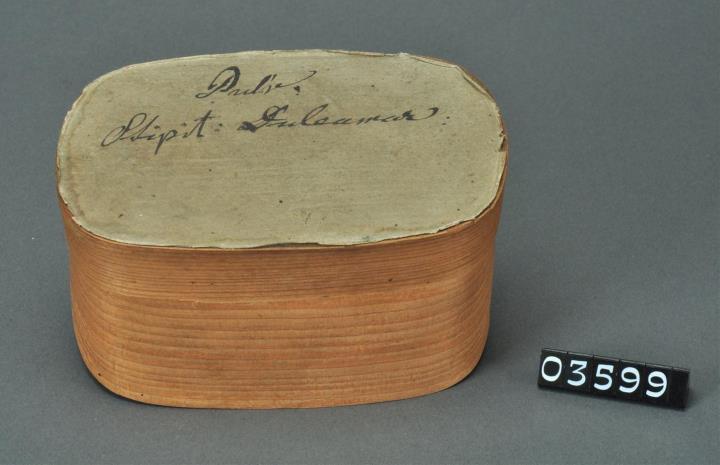 Pulv.
Stipit: Dulcamar:
03599